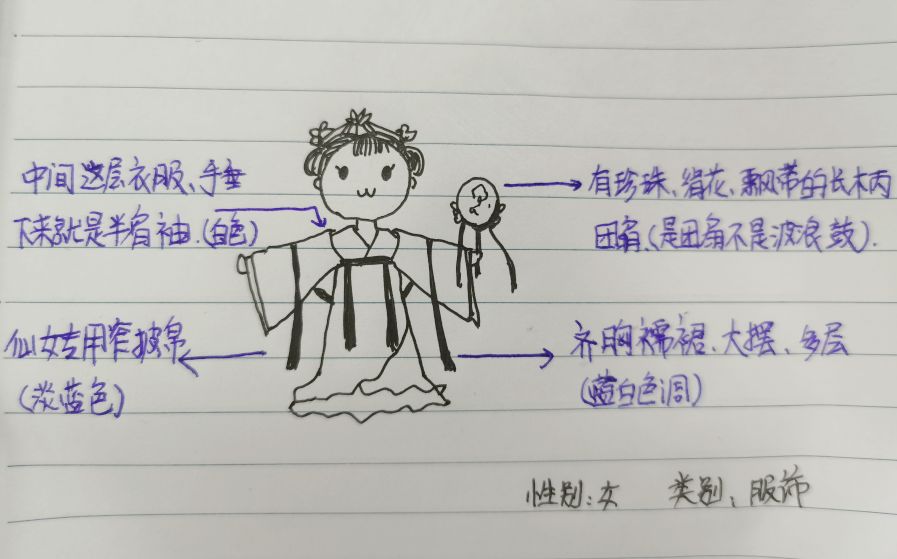 中间这层衣服、手垂
下来就是半宽袖.(白色)
有珍珠、绢花、飘带的长木柄
团扇.(是团扇不是波浪鼓).
仙女专用窄披帛
(淡蓝色)
齐胸襦裙、大摆、多层
(蓝白色调)
性别:女 类别:服饰